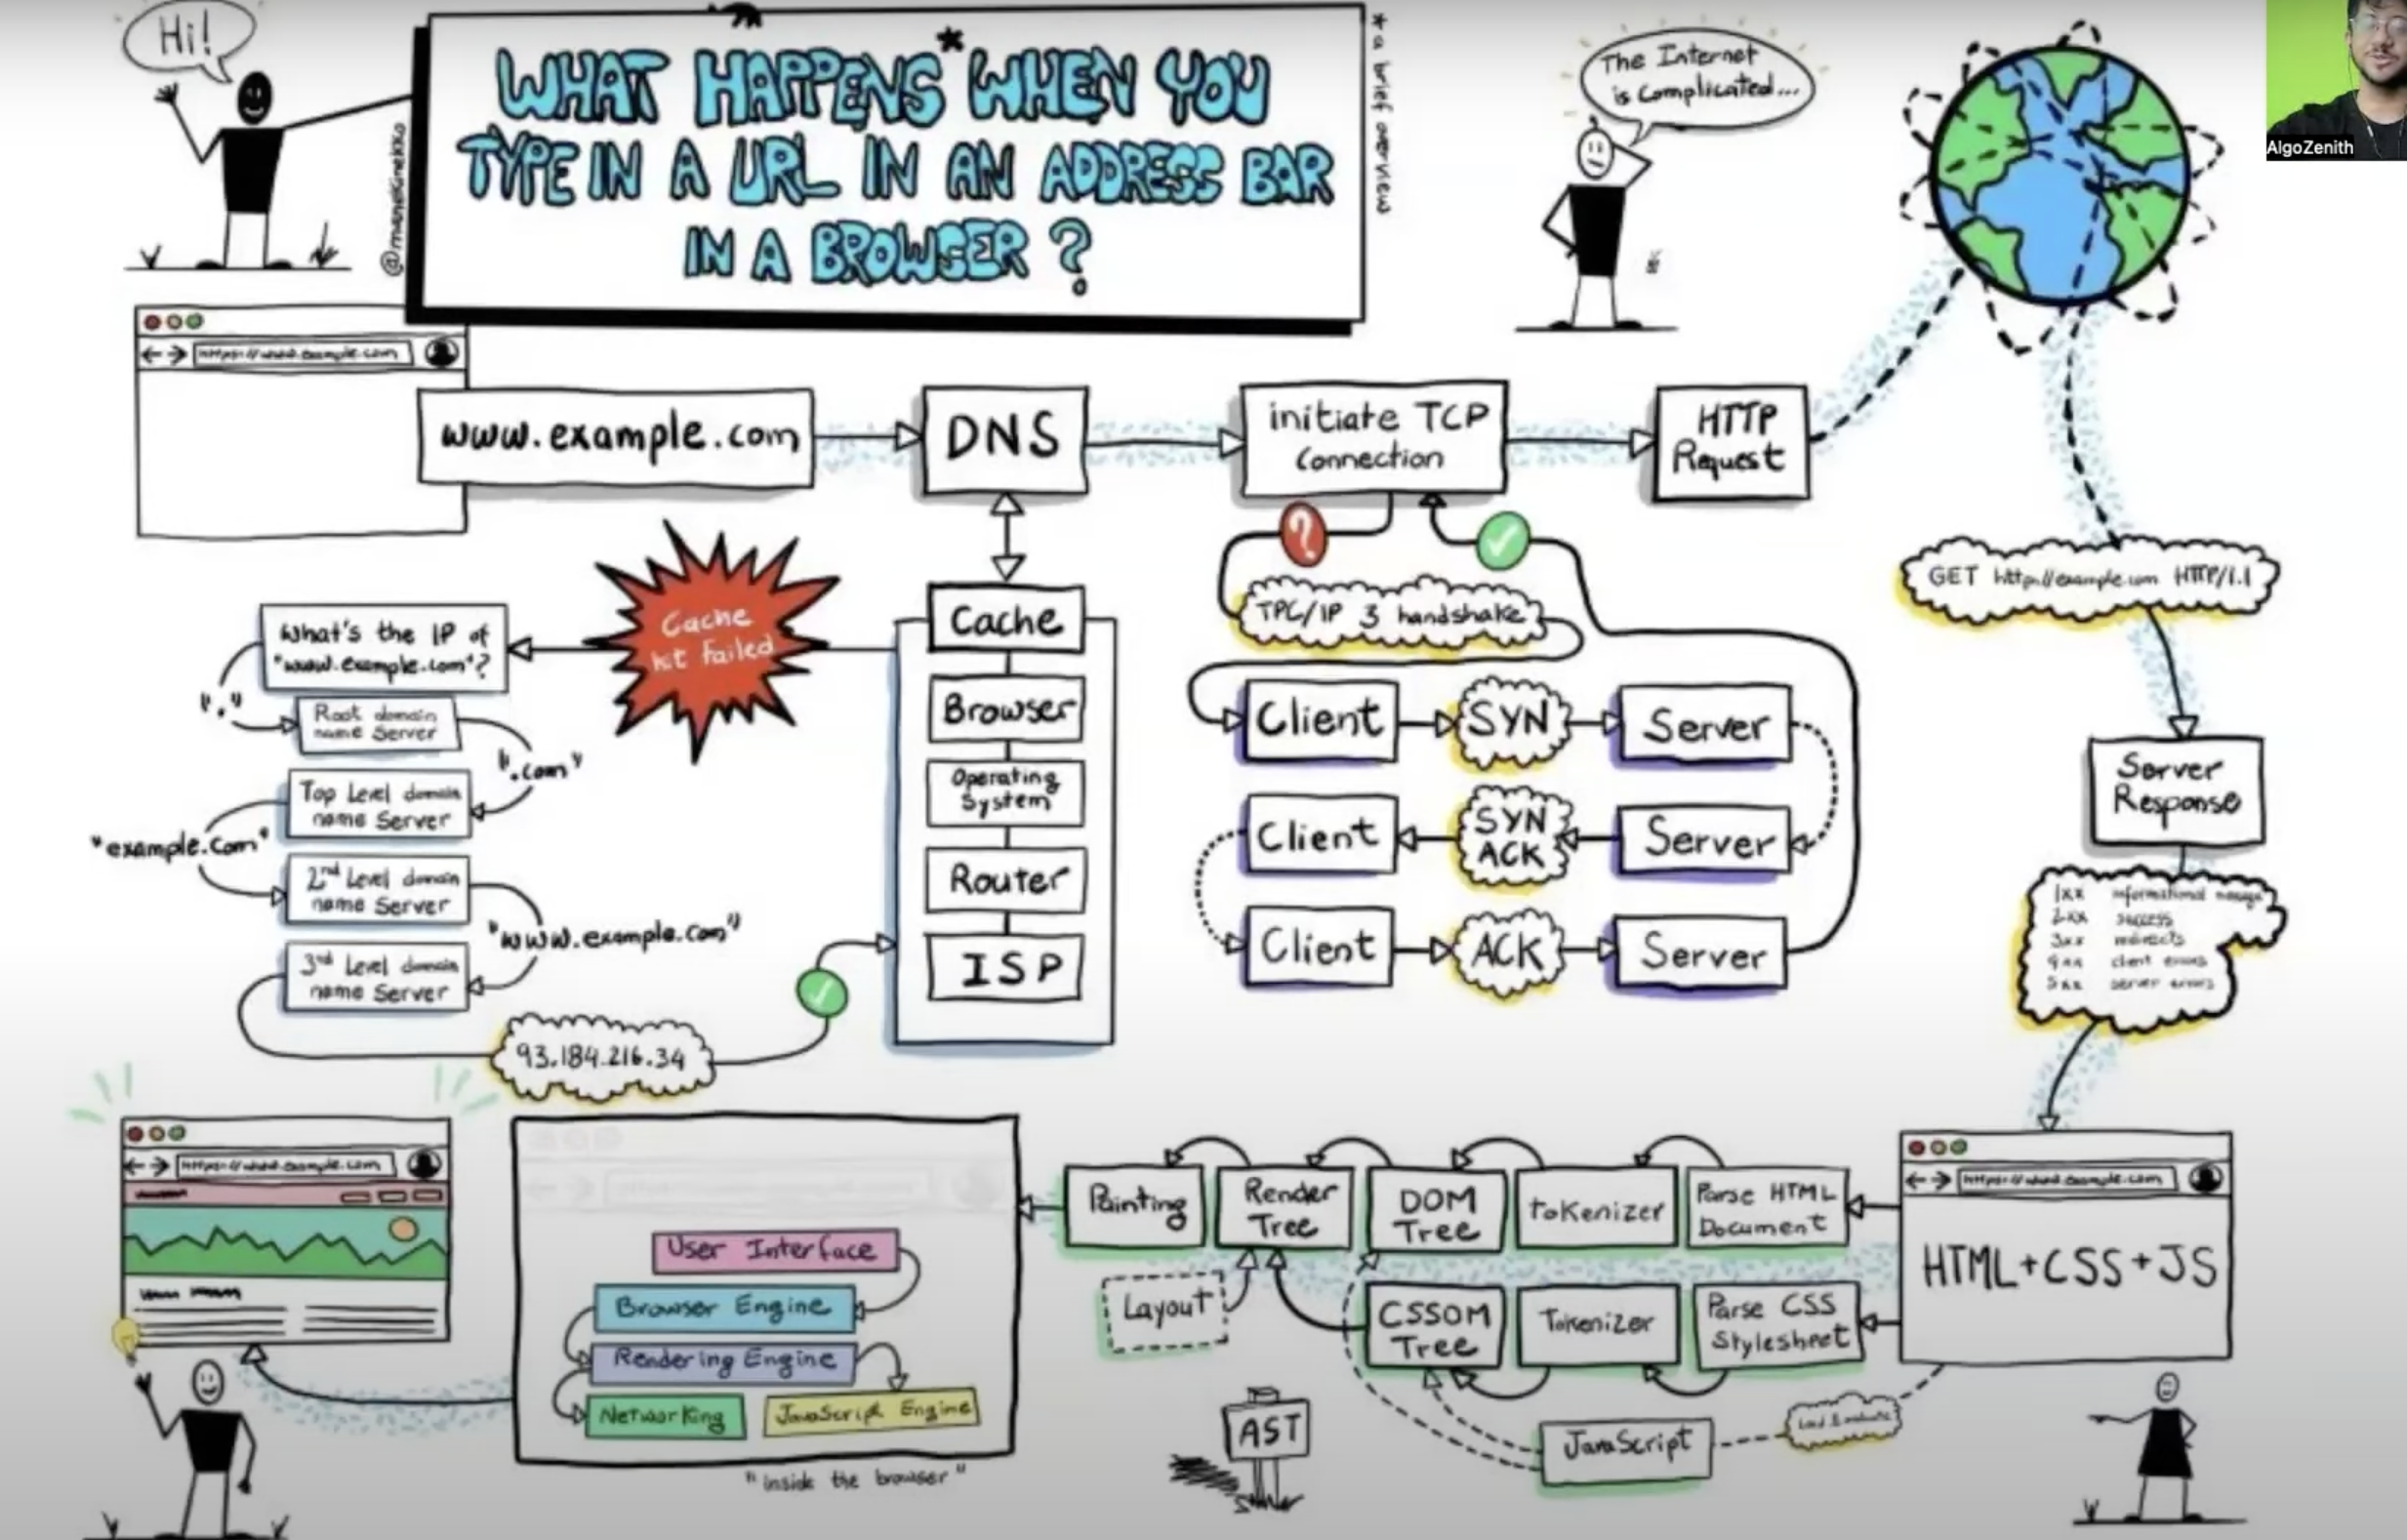 Hi!
WHAT HAPPENS* WHEN YOU
TYPE IN A URL IN AN ADDRESS BAR
IN A BROWSER ?
@manekinekko
* a brief overview
The Internet
is Complicated...
AlgoZenith
https://www.example.com
www.example.com
DNS
initiate TCP
Connection
HTTP
Request
GET http://example.com HTTP/1.1
Cache
hit failed
What's the IP of
"www.example.com"?
"."
Root domain
name Server
".com"
Top Level domain
name Server
"example.com"
2nd Level domain
name Server
"www.example.com"
3rd Level domain
name Server
93.184.216.34
Cache
Browser
Operating
System
Router
ISP
?
TPC/IP 3 handshake
Client
SYN
Server
Client
SYN
ACK
Server
Client
ACK
Server
Server
Response
1xx informational
2xx success
3xx redirects
4xx client errors
5xx server errors
https://www.example.com
HTML+CSS+JS
Parse HTML
Document
tokenizer
DOM
Tree
Render
Tree
Painting
Layout
Parse CSS
Stylesheet
Tokenizer
CSSOM
Tree
JavaScript
AST
User Interface
Browser Engine
Rendering Engine
Networking
JavaScript Engine
"inside the browser"
https://www.example.com